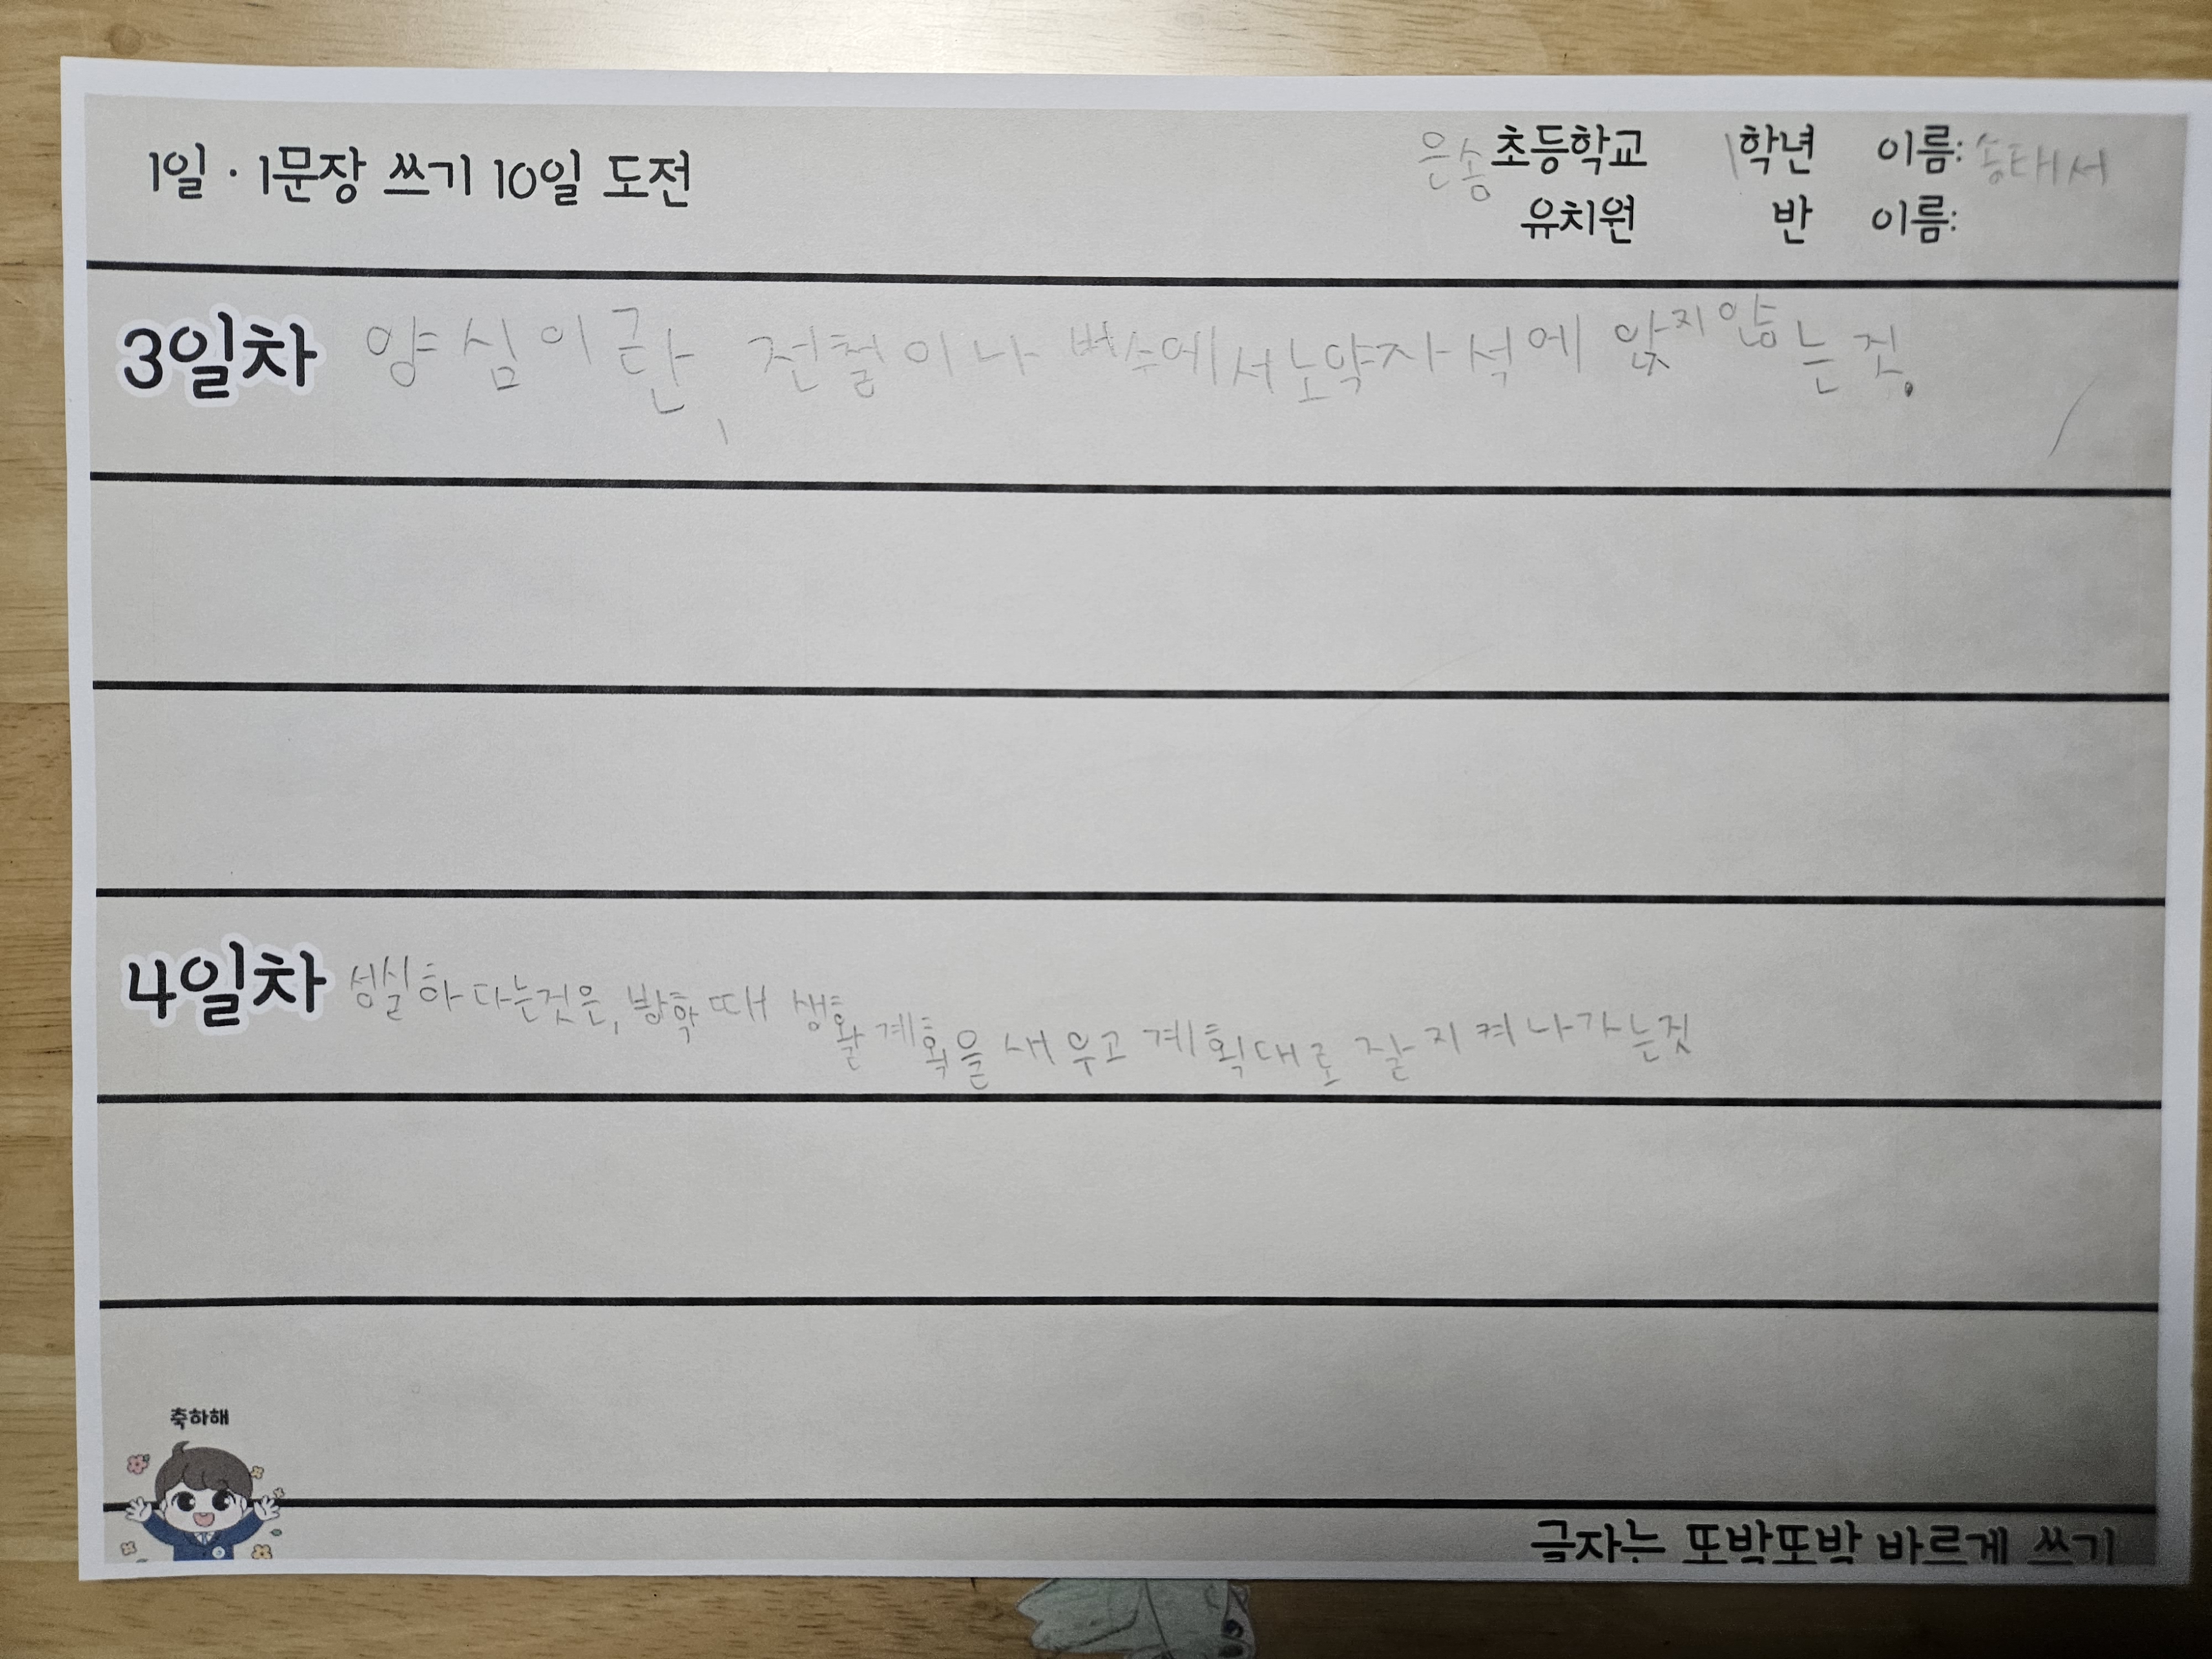 1일·1문장 쓰기 10일 도전
은송초등학교 1학년 이름: 송태서
유치원 반 이름:
3일차 양심이란, 전철이나 버스에서 노약자석에 앉지 않는 것.
4일차 성실하다는것은, 방학 때 생활 계획을 새우고 계획대로 잘 지켜 나가는것
축하해
글자는 또박또박 바르게 쓰기